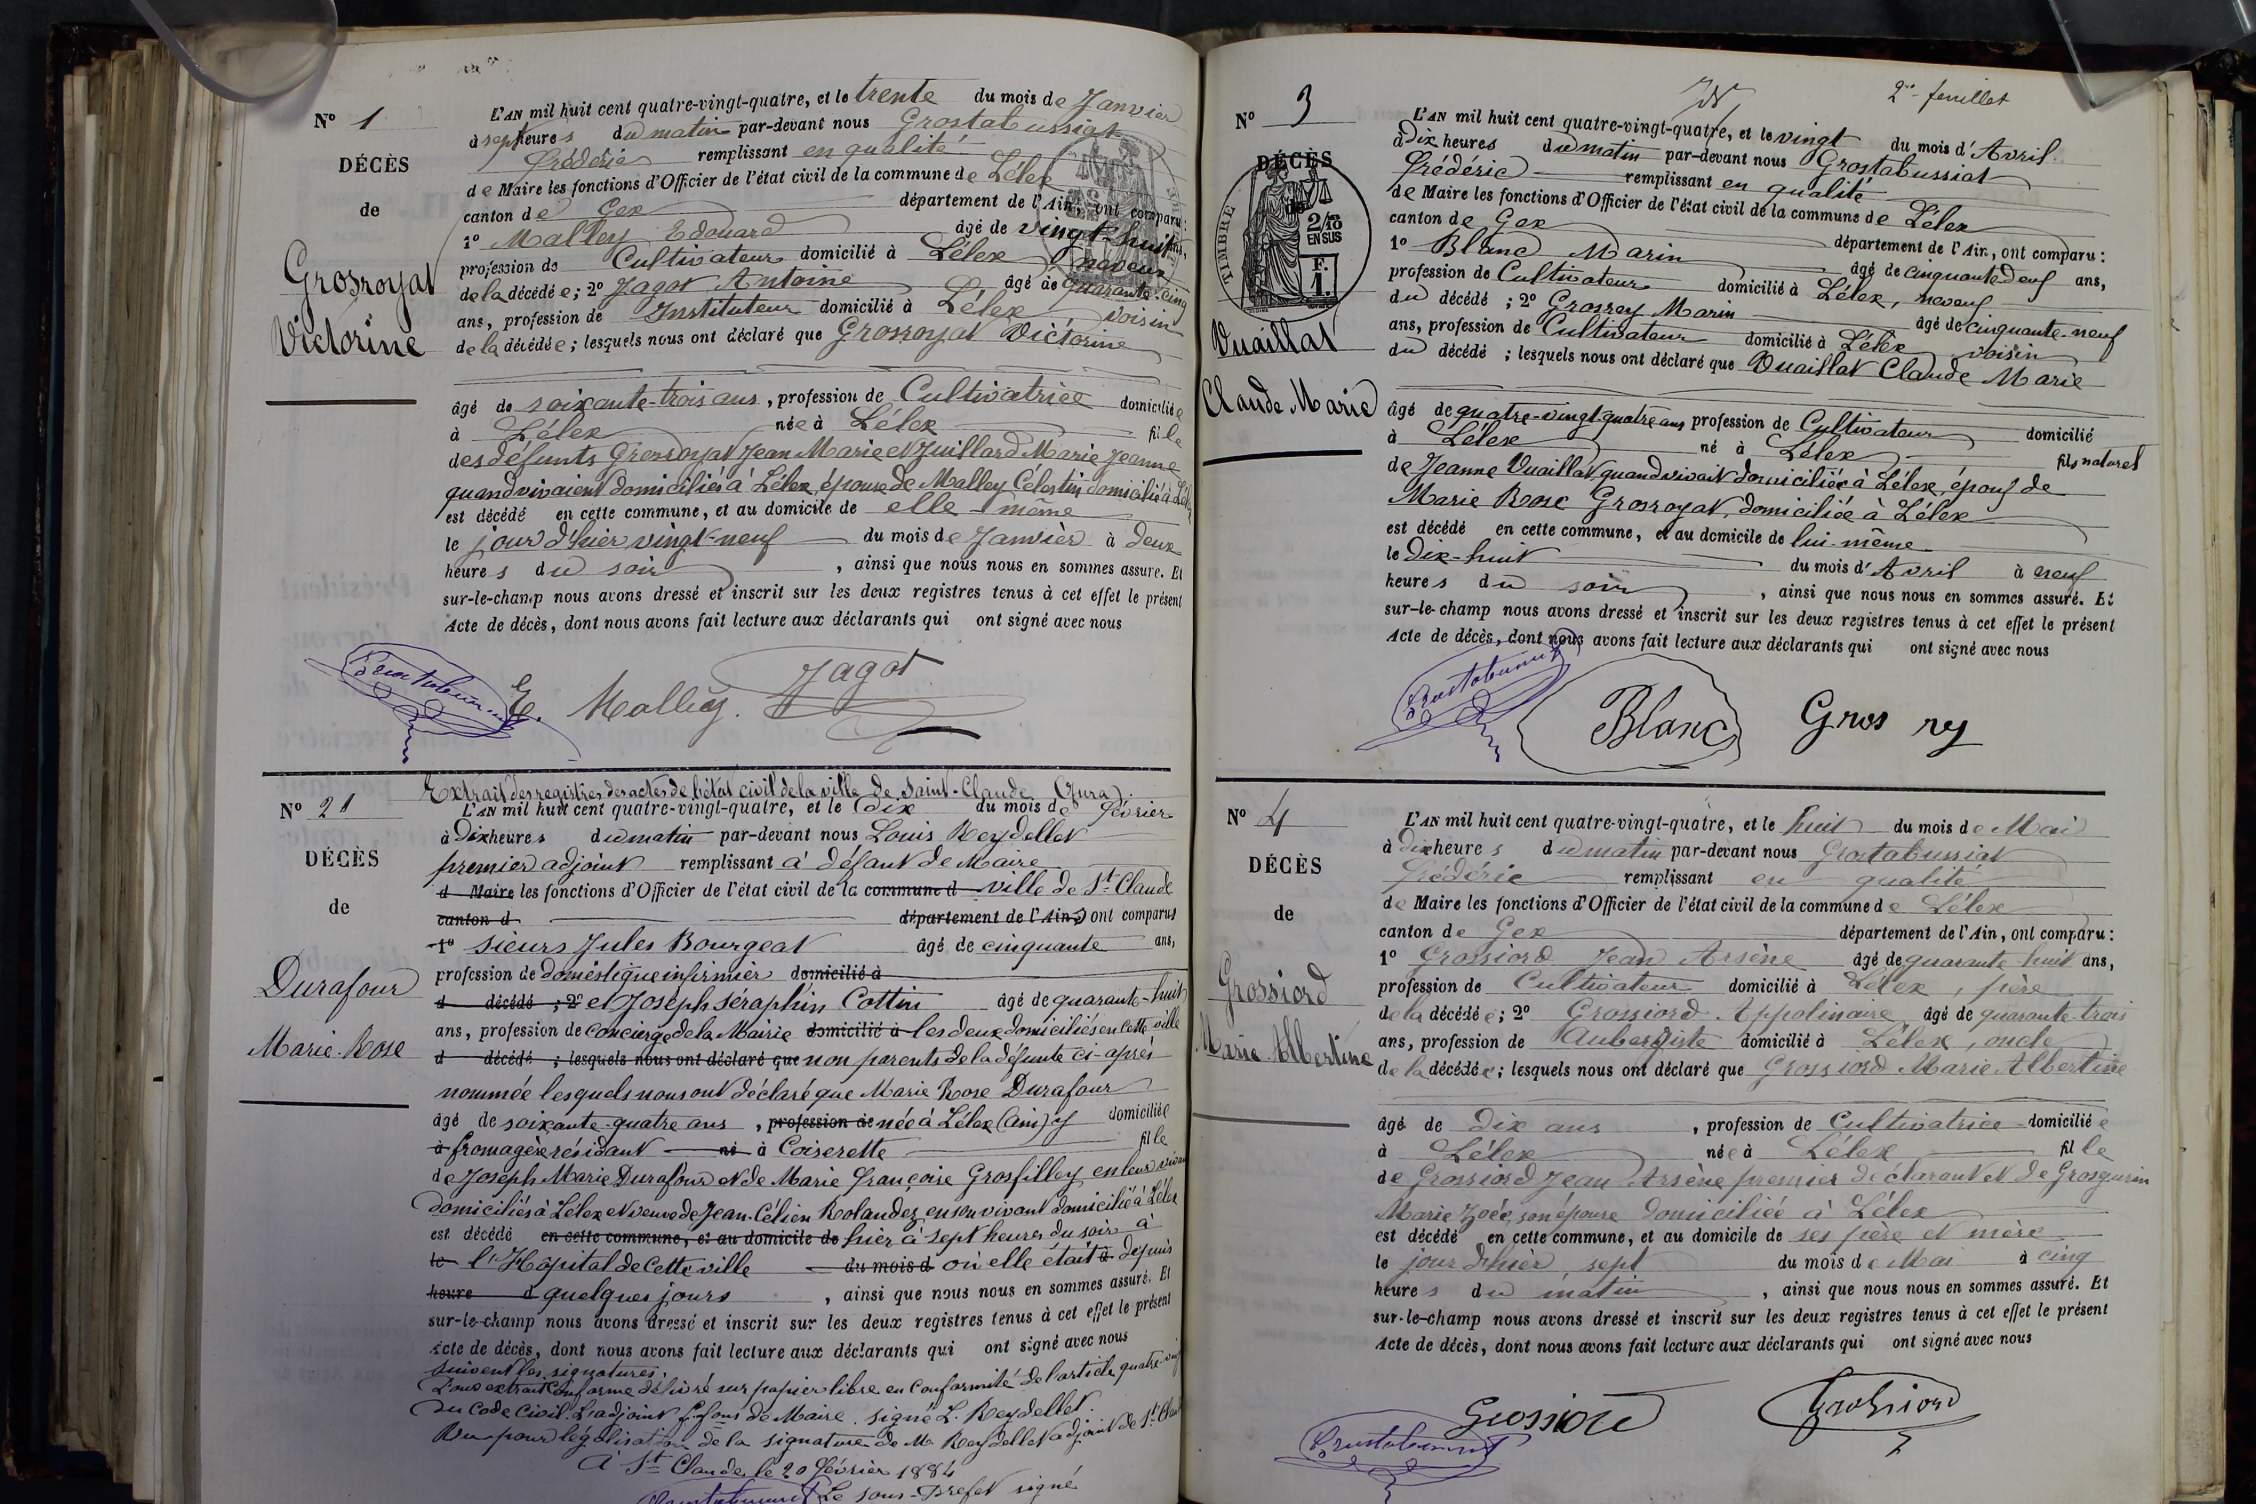 N° 1
DÉCÈS
de
Grosroyat
Victorine
L'AN mil huit cent quatre-vingt-quatre, et le trente du mois de Janvier
à sept heures du matin par-devant nous Grostabussiat
Frédéric remplissant en qualité
de Maire les fonctions d'Officier de l'état civil de la commune de Lélex
canton de Gex département de l'Ain, ont comparu :
1° Malley Edouard âgé de vingt-huit ans,
profession de Cultivateur domicilié à Lélex neveu
de la décédée ; 2° Jagot Antoine âgé de quarante-cinq
ans, profession de Instituteur domicilié à Lélex voisin
de la décédée ; lesquels nous ont déclaré que Grosroyat Victorine
âgé de soixante-trois ans, profession de Cultivatrice domiciliée
à Lélex née à Lélex fille
des défunts Grosroyat Jean Marie et Juillard Marie Jeanne
quand vivaient domiciliés à Lélex, épouse de Malley Célestin domicilié à Lélex
est décédé en cette commune, et au domicile de elle-même
le jour d'hier vingt-neuf du mois de Janvier à deux
heures du soir, ainsi que nous nous en sommes assuré. Et
sur-le-champ nous avons dressé et inscrit sur les deux registres tenus à cet effet le présent
Acte de décès, dont nous avons fait lecture aux déclarants qui ont signé avec nous
Grostabussiat E. Malley. Jagot
N° 21
DÉCÈS
de
Durafour
Marie-Rose
Extrait des registres des actes de l'état civil de la ville de Saint-Claude (Jura).
L'AN mil huit cent quatre-vingt-quatre, et le dix du mois de février
à dix heures du matin par-devant nous Louis Reydellet
premier adjoint remplissant à défaut de Maire
d Maire les fonctions d'Officier de l'état civil de la commune d ville de St. Claude
canton d département de l'Ain, ont comparus
1° sieurs Jules Bourgeat âgé de cinquante ans,
profession de domestique infirmier domicilié à
d décédé ; 2° et Joseph Séraphin Cottin âgé de quarante-huit
ans, profession de concierge de la Mairie domicilié à les deux domiciliés en cette ville
d décédé ; lesquels nous ont déclaré que non parents de la défunte ci-après
nommée lesquels nous ont déclaré que Marie Rose Durafour
âgé de soixante-quatre ans, profession de née à Lélex (Ain) y domiciliée
à fromagère résidant né à Coiserette fille
de Joseph Marie Durafour et de Marie Françoise Grosfilley, en leur vivant
domiciliés à Lélex et veuve de Jean-Célien Rolandez, en son vivant domicilié à Lélex
est décédé en cette commune, et au domicile de hier à sept heures du soir à
le l'Hôpital de cette ville du mois d où elle était à depuis
heure d quelques jours, ainsi que nous nous en sommes assuré. Et
sur-le-champ nous avons dressé et inscrit sur les deux registres tenus à cet effet le présent
Acte de décès, dont nous avons fait lecture aux déclarants qui ont signé avec nous
suivent les signatures.
Pour extrait conforme délivré sur papier libre en conformité de l'article quatre-vingt
du Code civil. L'adjoint f. fons de Maire. signé L. Reydellet.
Vu pour légalisation de la signature de M. Reydellet adjoint de St. Claude
A St. Claude, le 20 février 1884
Grostabussiat Le sous-Préfet signé
2e feuillet
N° 3
DÉCÈS
de
TIMBRE
2/10
EN SUS
F.
1.
Vuaillat
Claude Marie
L'AN mil huit cent quatre-vingt-quatre, et le vingt du mois d'Avril
à dix heures du matin par-devant nous Grostabussiat
Frédéric remplissant en qualité
de Maire les fonctions d'Officier de l'état civil de la commune de Lélex
canton de Gex département de l'Ain, ont comparu :
1° Blanc Marin âgé de cinquante neuf ans,
profession de Cultivateur domicilié à Lélex, neveu
du décédé ; 2° Grosrey Marin âgé de cinquante-neuf
ans, profession de Cultivateur domicilié à Lélex voisin
du décédé ; lesquels nous ont déclaré que Vuaillat Claude Marie
âgé de quatre-vingt-quatre ans profession de Cultivateur domicilié
à Lélex né à Lélex fils naturel
de Jeanne Vuaillat, quand vivait domiciliée à Lélex, époux de
Marie Rose Grosroyat, domiciliée à Lélex
est décédé en cette commune, et au domicile de lui-même
le dix-huit du mois d'Avril à neuf
heures du soir, ainsi que nous nous en sommes assuré. Et
sur-le-champ nous avons dressé et inscrit sur les deux registres tenus à cet effet le présent
Acte de décès, dont nous avons fait lecture aux déclarants qui ont signé avec nous
Grostabussiat Blanc Gros rey
N° 4
DÉCÈS
de
Grossiord
Marie Albertine
L'AN mil huit cent quatre-vingt-quatre, et le huit du mois de Mai
à dix heures du matin par-devant nous Grostabussiat
Frédéric remplissant en qualité
de Maire les fonctions d'Officier de l'état civil de la commune de Lélex
canton de Gex département de l'Ain, ont comparu :
1° Grossiord Jean Arsène âgé de quarante-huit ans,
profession de Cultivateur domicilié à Lélex, père
de la décédée ; 2° Grossiord Appolinaire âgé de quarante-trois
ans, profession de Aubergiste domicilié à Lélex, oncle
de la décédée ; lesquels nous ont déclaré que Grossiord Marie Albertine
âgé de dix ans, profession de Cultivatrice domiciliée
à Lélex née à Lélex fille
de Grossiord Jean Arsène premier déclarant et de Grosgurin
Marie Zoée, son épouse domiciliée à Lélex
est décédé en cette commune, et au domicile de ses père et mère
le jour d'hier sept du mois de Mai à cinq
heures du matin, ainsi que nous nous en sommes assuré. Et
sur-le-champ nous avons dressé et inscrit sur les deux registres tenus à cet effet le présent
Acte de décès, dont nous avons fait lecture aux déclarants qui ont signé avec nous
Grossiord Grossiord
Grostabussiat